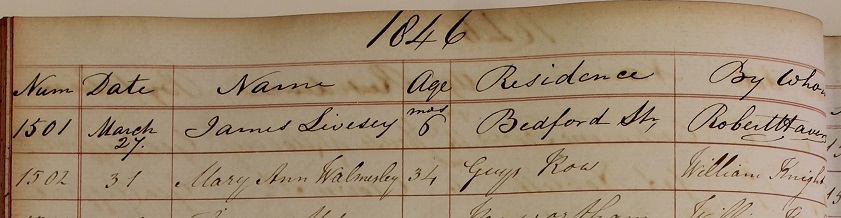 1846
Num Date Name Age Residence By Whom
1501 March 27. James Livesey mos 6 Bedford Str,
1502 31 Mary Ann Walmesley 34 Guys Row William Knight